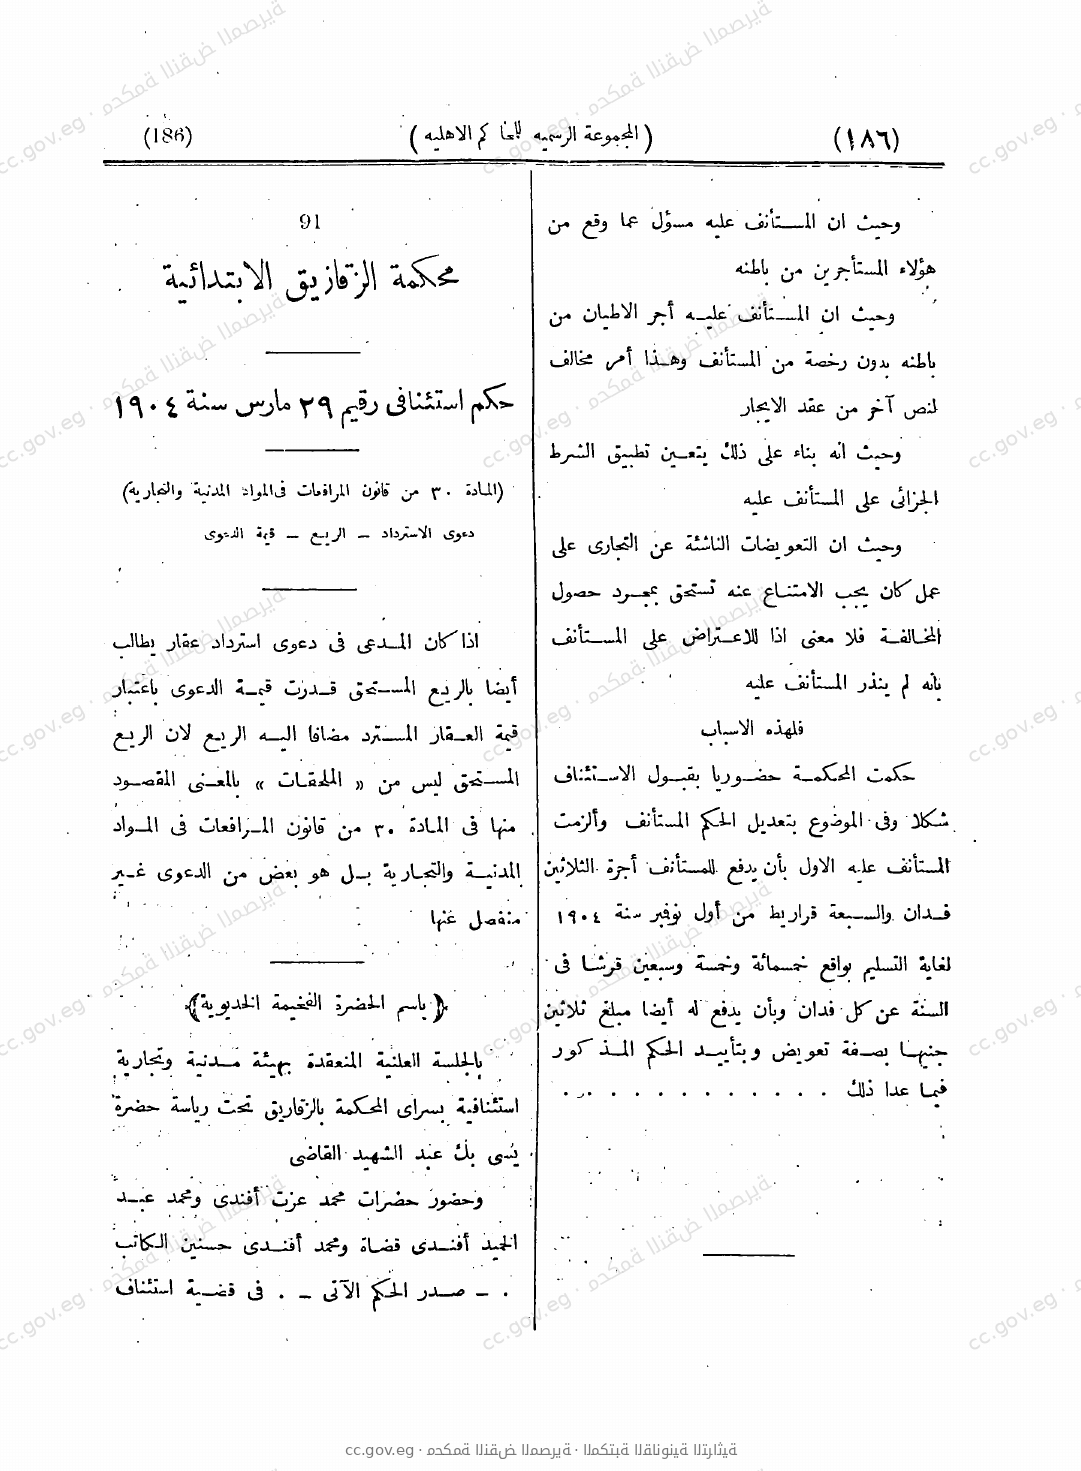 (١٨٦)
(المجموعة الرسميه للمحاكم الاهليه)
(186)
وحيث ان المستأنف عليه مسؤل عما وقع من
هؤلاء المستأجرين من باطنه
وحيث ان المستأنف عليه أجر الاطيان من
باطنه بدون رخصة من المستأنف وهذا أمر مخالف
لنص آخر من عقد الايجار
وحيث انه بناء على ذلك يتعين تطبيق الشرط
الجزائى على المستأنف عليه
وحيث ان التعويضات الناشئة عن التجارى على
عمل كان يجب الامتناع عنه تستحق بمجرد حصول
المخالفة فلا معنى اذا للاعتراض على المستأنف
بأنه لم ينذر المستأنف عليه
فلهذه الاسباب
حكمت المحكمة حضوريا بقبول الاستئناف
شكلا وفى الموضوع بتعديل الحكم المستأنف وألزمت
المستأنف عليه الاول بأن يدفع للمستأنف أجرة الثلاثين
فدان والسبعة قراريط من أول نوفمبر سنة ١٩٠٤
لغاية التسليم بواقع خمسمائة وخمسة وسبعين قرشا فى
السنة عن كل فدان وبأن يدفع له أيضا مبلغ ثلاثين
جنيها بصفة تعويض وبتأييد الحكم المذكور
فيما عدا ذلك . . . . . . . . . . . .
91
محكمة الزقازيق الابتدائية
حكم استئنافى رقيم ٢٩ مارس سنة ١٩٠٤
(المادة ٣٠ من قانون المرافعات فى المواد المدنية والتجارية)
دعوى الاسترداد – الريع – قيمة الدعوى
اذا كان المدعى فى دعوى استرداد عقار يطالب
أيضا بالريع المستحق قدرت قيمة الدعوى باعتبار
قيمة العقار المسترد مضافا اليه الريع لان الريع
المستحق ليس من « الملحقات » بالمعنى المقصود
منها فى المادة ٣٠ من قانون المرافعات فى المواد
المدنية والتجارية بل هو بعض من الدعوى غير
منفصل عنها
﴿باسم الحضرة الفخيمة الخديوية﴾
بالجلسة العلنية المنعقدة بهيئة مدنية وتجارية
استئنافية بسراى المحكمة بالزقازيق تحت رياسة حضرة
يسى بك عبد الشهيد القاضى
وحضور حضرات محمد عزت أفندى ومحمد عبد
الحميد أفندى قضاة ومحمد أفندى حسنين الكاتب
. – صدر الحكم الآتى – . فى قضية استئناف
cc.gov.eg · محكمة النقض المصرية · المكتبة القانونية التراثية